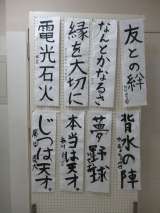 友との絆
なんとかなるさ
縁を大切に
電光石火
背水の陣
夢野球
本当は天才。
じつは天才。